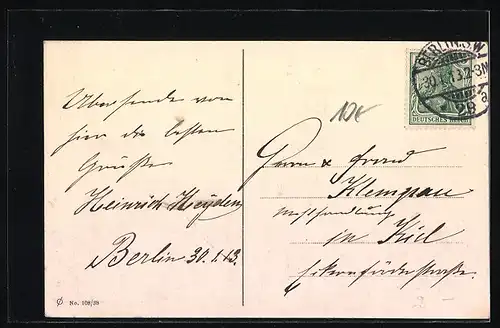 Übersende von
hier die besten
Grüße
Heinrich Heyden
Berlin 30.1.13.
No. 109/39
BERLIN S.W.
30 13.2-3N
28
a
DEUTSCHES REICH
10€
Herrn &
Klemgau
Mehlhandlung
in Kiel
Eckernförderstraße.
2 –